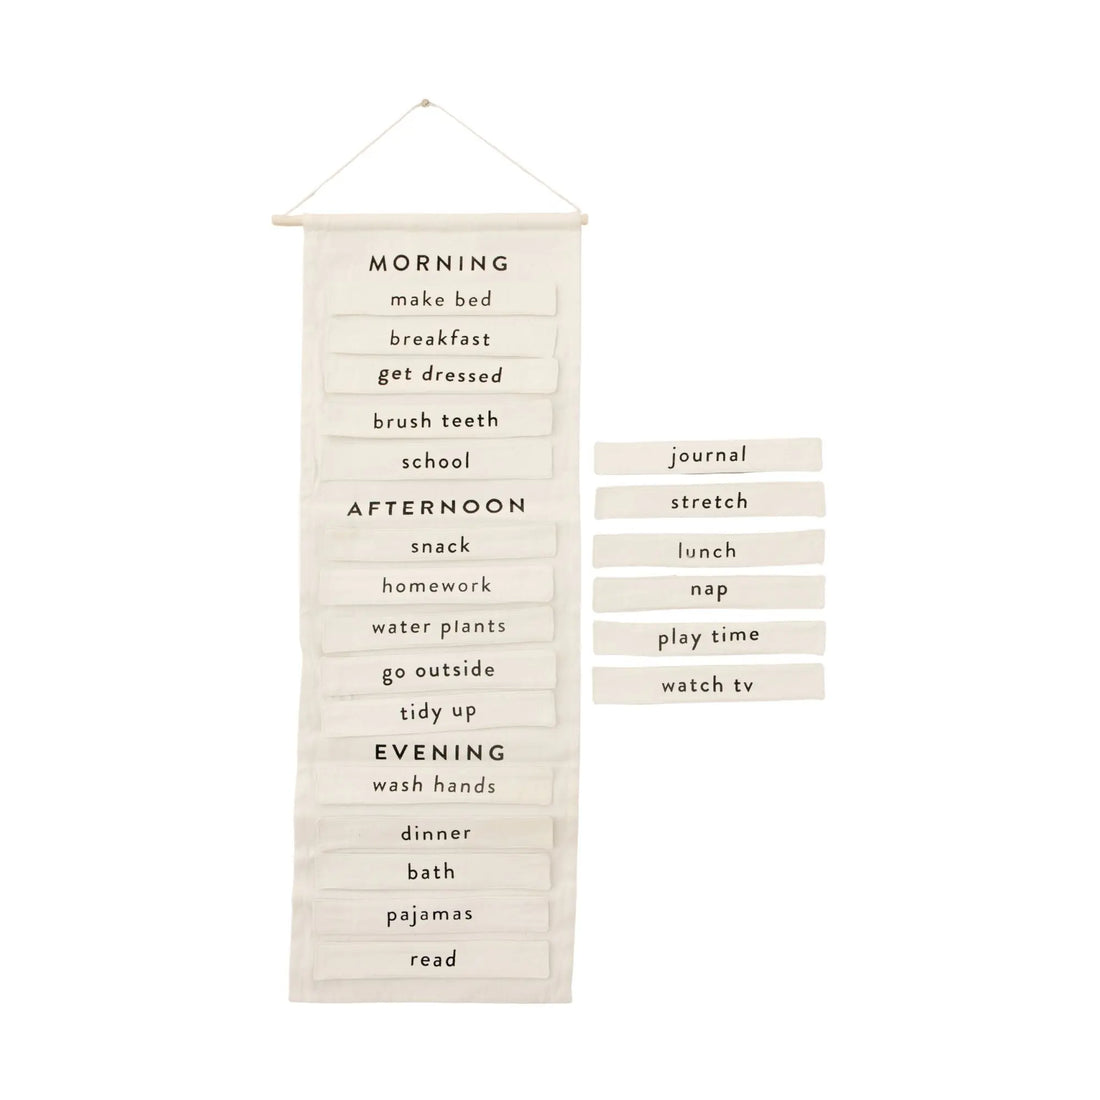 MORNING
make bed
breakfast
get dressed
brush teeth
school
AFTERNOON
snack
homework
water plants
go outside
tidy up
EVENING
wash hands
dinner
bath
pajamas
read
journal
stretch
lunch
nap
play time
watch tv